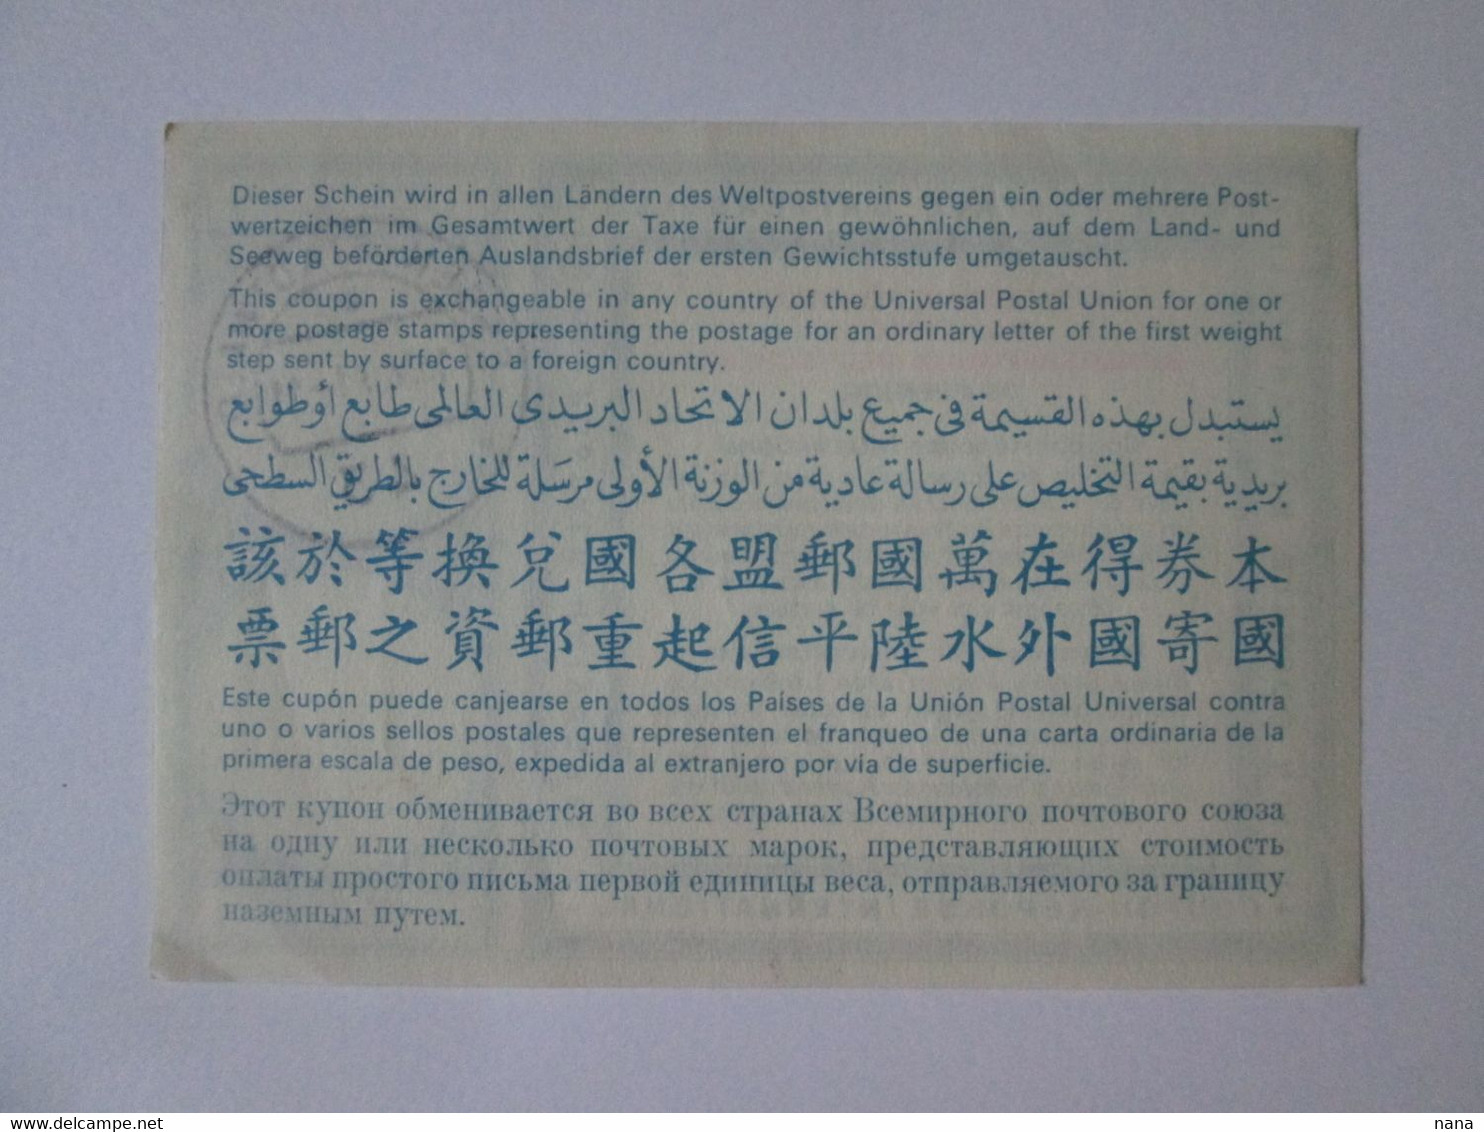 Dieser Schein wird in allen Ländern des Weltpostvereins gegen ein oder mehrere Post-
wertzeichen im Gesamtwert der Taxe für einen gewöhnlichen, auf dem Land- und
Seeweg beförderten Auslandsbrief der ersten Gewichtsstufe umgetauscht.
This coupon is exchangeable in any country of the Universal Postal Union for one or
more postage stamps representing the postage for an ordinary letter of the first weight
step sent by surface to a foreign country.
يستبدل بهذه القسيمة فى جميع بلدان الاتحاد البريدى العالمى طابع أوطوابع
بريدية بقيمة التخليص على رسالة عادية من الوزنة الأولى مرسَلة للخارج بالطريق السطحى
該於等換兌國各盟郵國萬在得券本
票郵之資郵重起信平陸水外國寄國
Este cupón puede canjearse en todos los Países de la Unión Postal Universal contra
uno o varios sellos postales que representen el franqueo de una carta ordinaria de la
primera escala de peso, expedida al extranjero por vía de superficie.
Этот купон обменивается во всех странах Всемирного почтового союза
на одну или несколько почтовых марок, представляющих стоимость
оплаты простого письма первой единицы веса, отправляемого за границу
наземным путем.
delcampe.net
nana